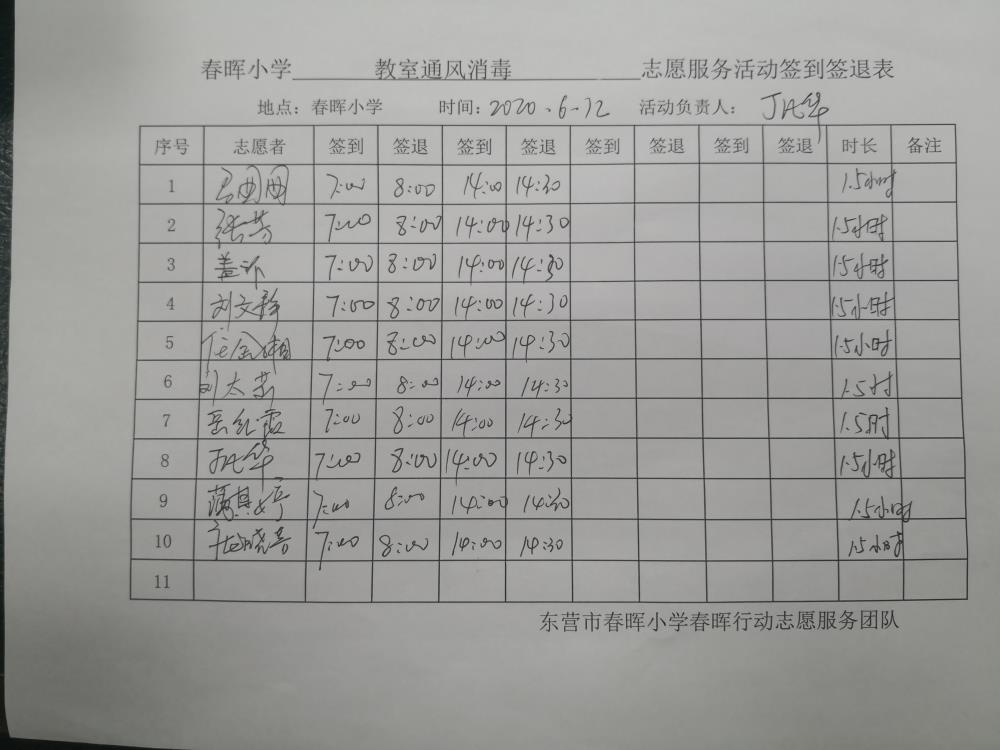 春晖小学 教室通风消毒 志愿服务活动签到签退表
地点：春晖小学 时间：2020.6-12 活动负责人：
序号 志愿者 签到 签退 签到 签退 签到 签退 签到 签退 时长 备注
1 7:00 8:00 14:00 14:30 1.5小时
2 张芳 7:00 8:00 14:00 14:30 1.5小时
3 7:00 8:00 14:00 14:30 1.5小时
4 刘文静 7:00 8:00 14:00 14:30 1.5小时
5 7:00 8:00 14:00 14:30 1.5小时
6 7:00 8:00 14:00 14:30 1.5时
7 岳红霞 7:00 8:00 14:00 14:30 1.5时
8 7:00 8:00 14:00 14:30 1.5小时
9 7:00 8:00 14:00 14:30 1.5小时
10 7:00 8:00 14:00 14:30 1.5小时
11
东营市春晖小学春晖行动志愿服务团队